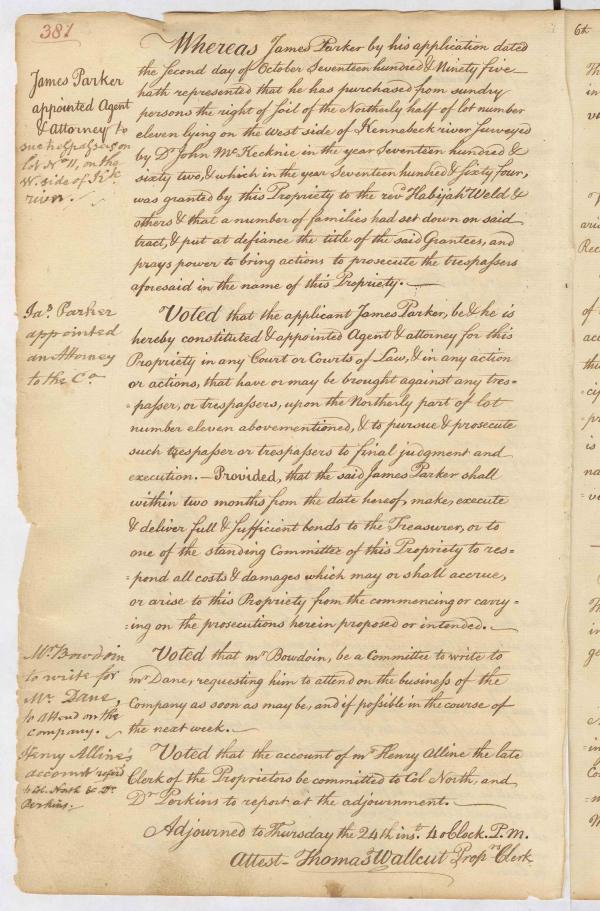 381
Whereas James Parker by his application dated
the second day of October Seventeen hundred & Ninety five
hath represented that he has purchased from sundry
persons the right of soil of the Northerly half of lot number
eleven lying on the West side of Kennebeck river surveyed
by Dr. John McKecknie in the year Seventeen hundred &
sixty two, & which in the year Seventeen hundred & sixty four,
was granted by this Propriety to the revd. Habijah Weld &
others & that a number of families had set down on said
tract, & put at defiance the title of the said Grantees, and
prays power to bring actions to prosecute the trespassers
aforesaid in the name of this Propriety.
James Parker
appointed Agent
& Attorney to
on
lot No. 11, on the
W. side of Kk.
river.
Voted that the applicant James Parker, be & he is
hereby constituted & appointed Agent & attorney for this
Propriety in any Court or Courts of Law, & in any action
or actions, that have or may be brought against any tres=
=passer, or trespassers, upon the Northerly part of lot
number eleven abovementioned, & to pursue & prosecute
such trespasser or trespassers to final judgment and
execution. — Provided, that the said James Parker shall
within two months from the date hereof, make, execute
& deliver full & sufficient bonds to the Treasurer, or to
one of the standing Committee of this Propriety to res=
=pond all costs & damages which may or shall accrue,
or arise to this Propriety from the commencing or carry=
=ing on the prosecutions herein proposed or intended.
Jas. Parker
appointed
an Attorney
to the Co.
Voted that mr Bowdoin, be a Committee to write to
mr Dane, requesting him to attend on the business of the
Company as soon as may be, and if possible in the course of
the next week.
Mr. Bowdoin
to write for
Mr. Dane,
to attend on the
company.
Voted that the account of mr Henry Alline the late
Clerk of the Proprietors be committed to Col North, and
Dr Perkins to report at the adjournment.
Henry Alline's
account referd
to Col. North & Dr.
Perkins.
Adjourned to Thursday the 24th inst. 4 oClock. P.M.
Attest - Thomas Wallcut Propn. Clerk
6th